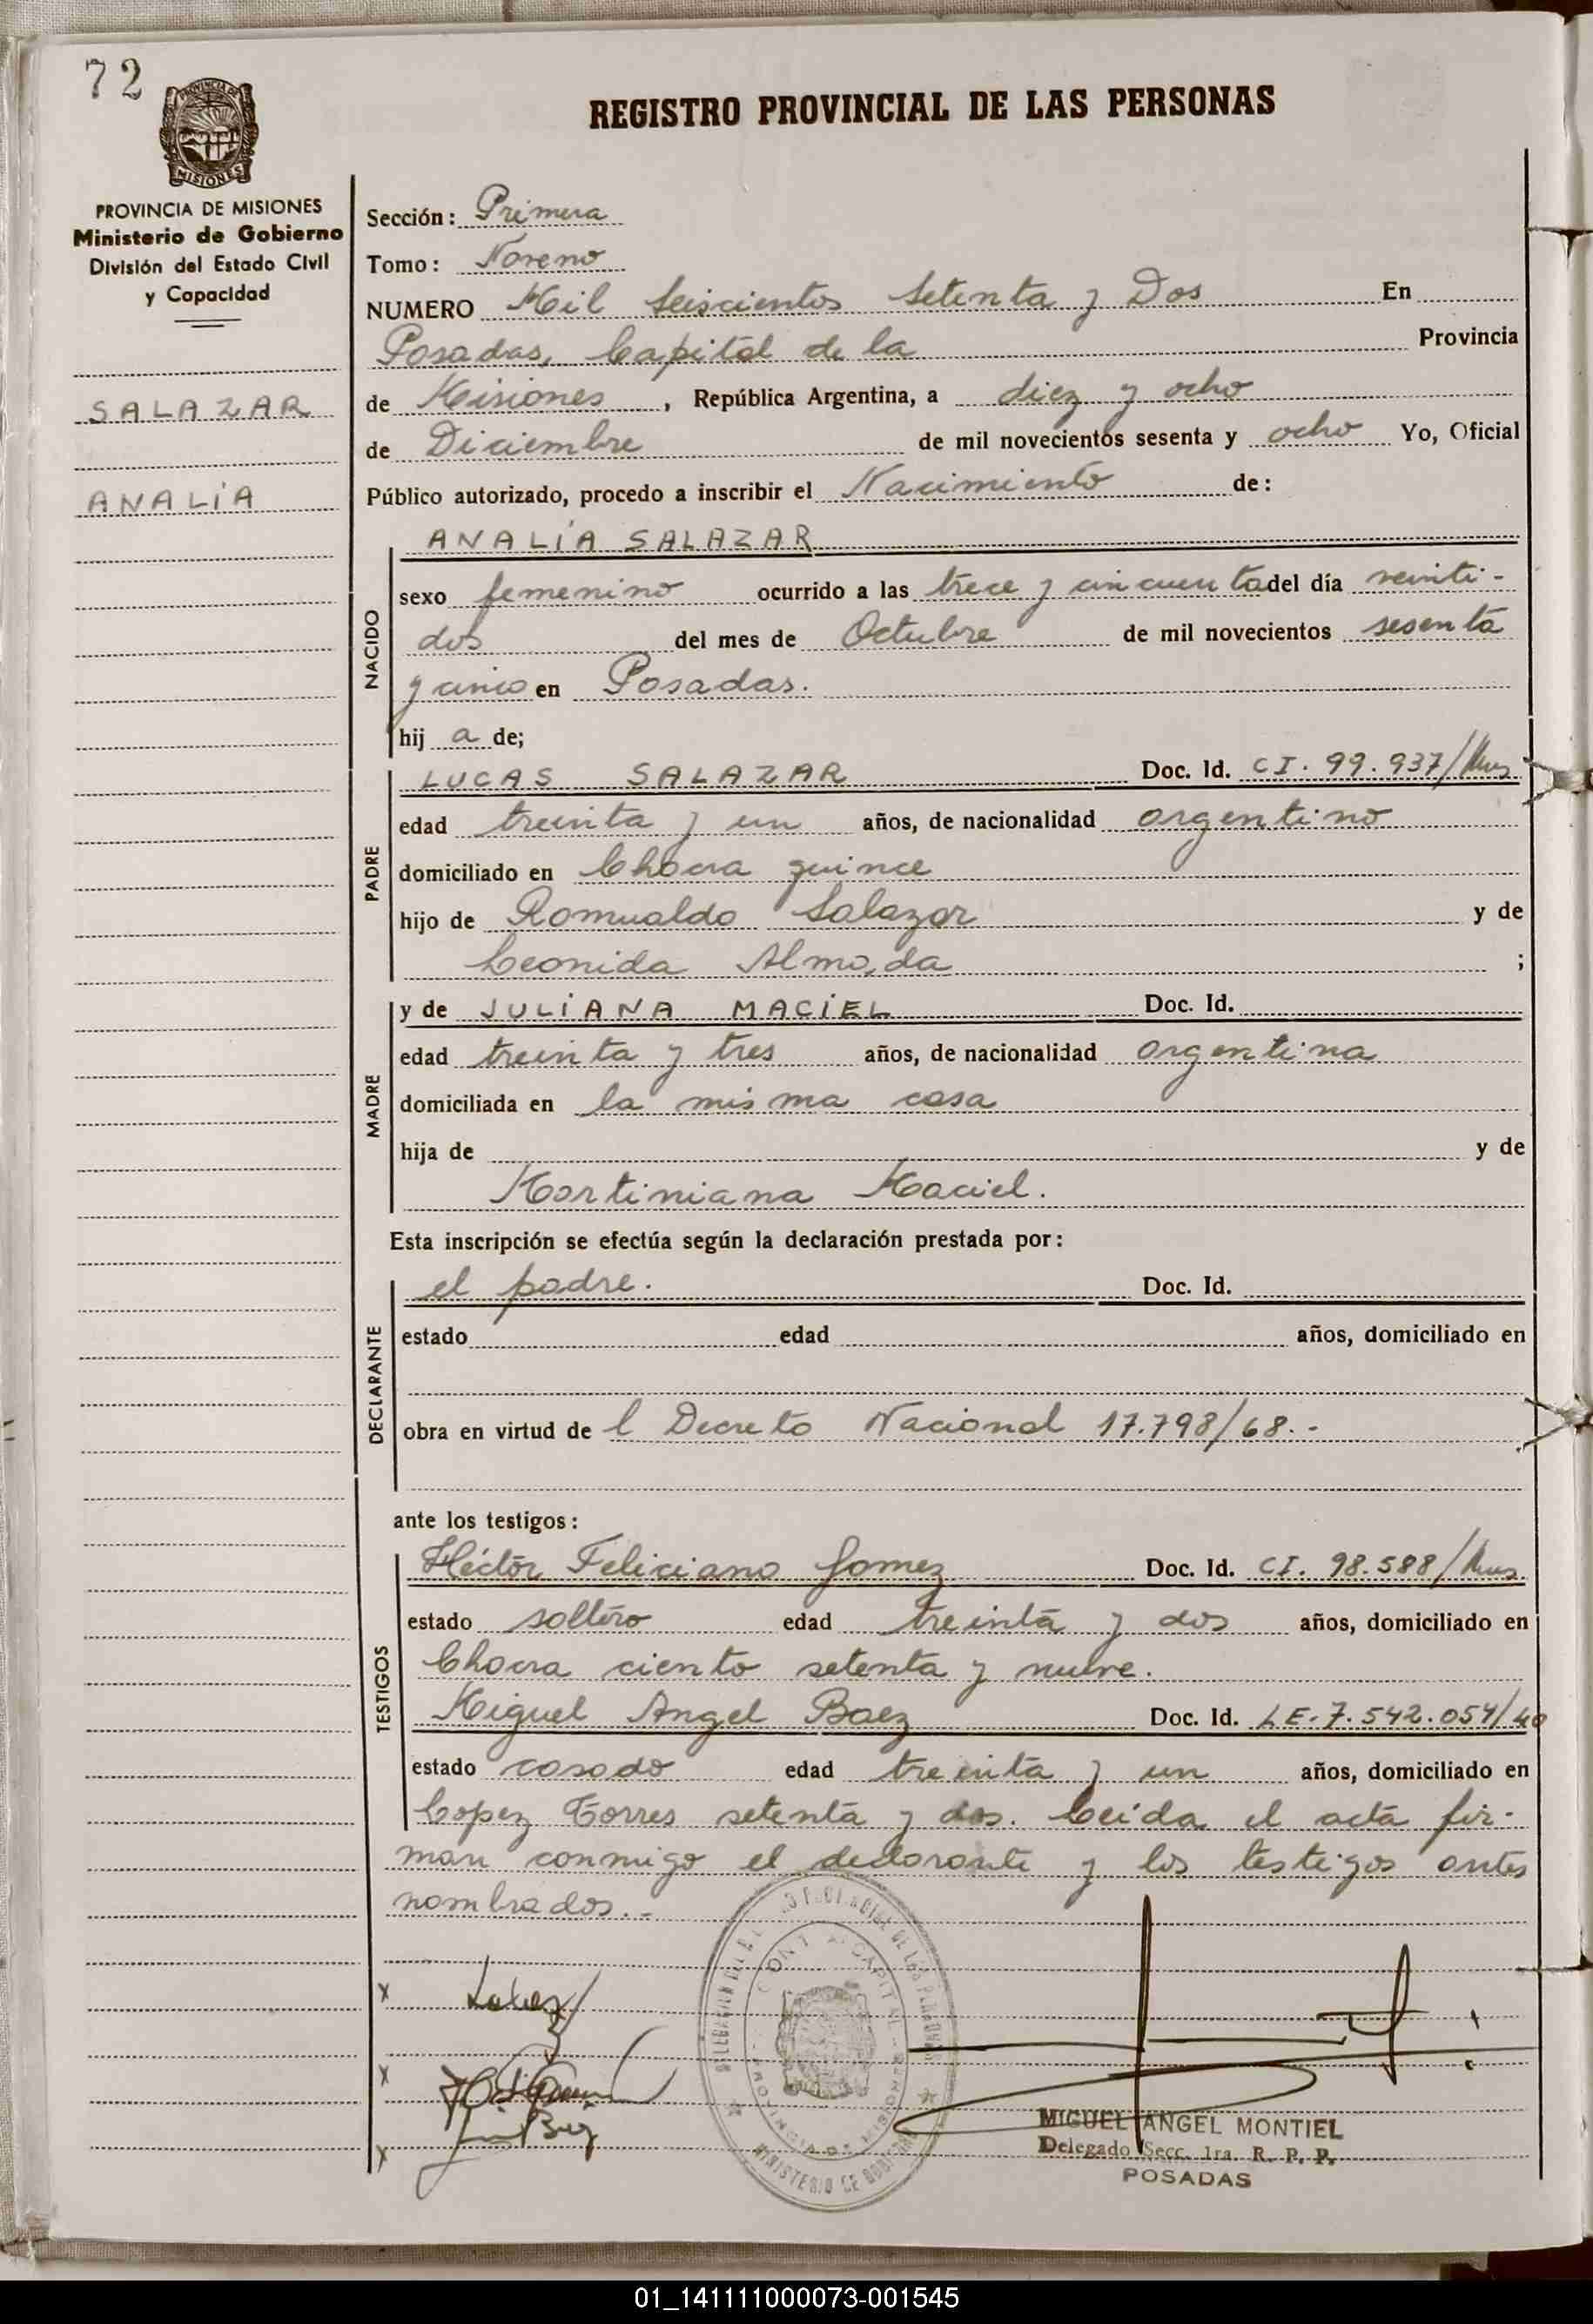 72
PROVINCIA DE
MISIONES
REGISTRO PROVINCIAL DE LAS PERSONAS
PROVINCIA DE MISIONES
Ministerio de Gobierno
División del Estado Civil
y Capacidad
SALAZAR
ANALÍA
Sección: Primera
Tomo: Noveno
NUMERO Mil Seiscientos Setenta y Dos En
Posadas, Capital de la Provincia
de Misiones, República Argentina, a diez y ocho
de Diciembre de mil novecientos sesenta y ocho Yo, Oficial
Público autorizado, procedo a inscribir el Nacimiento de:
NACIDO
ANALÍA SALAZAR
sexo femenino ocurrido a las trece y cincuenta del día veinti-
dos del mes de Octubre de mil novecientos sesenta
y cinco en Posadas.
hij a de;
PADRE
LUCAS SALAZAR Doc. Id. CI. 99.937/Mns
edad treinta y un años, de nacionalidad argentino
domiciliado en Chacra quince
hijo de Romualdo Salazar y de
Leonida Almada ;
MADRE
y de JULIANA MACIEL Doc. Id.
edad treinta y tres años, de nacionalidad argentina
domiciliada en la misma casa
hija de y de
Martiniana Maciel.
Esta inscripción se efectúa según la declaración prestada por:
DECLARANTE
el padre. Doc. Id.
estado edad años, domiciliado en
obra en virtud de l Decreto Nacional 17.798/68.-
ante los testigos:
TESTIGOS
Héctor Feliciano Gomez Doc. Id. CI. 98.588/Mns.
estado soltero edad treinta y dos años, domiciliado en
Chacra ciento setenta y nueve.
Miguel Angel Baez Doc. Id. LE. 7.542.054/40
estado casado edad treinta y un años, domiciliado en
Lopez Torres setenta y dos. Leida el acta fir-
man conmigo el declarante y los testigos antes
nombrados.-
x
x
x
MINISTERIO DE
MIGUEL ANGEL MONTIEL
Delegado Secc. 1ra. R. P. P.
POSADAS
01_141111000073-001545